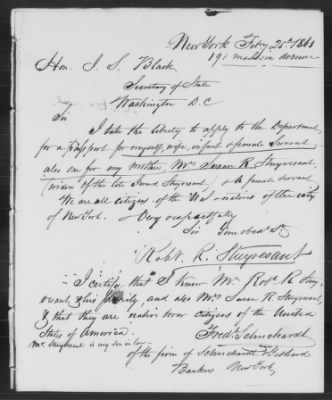 New York Feby 25th 1861
191 Madison Avenue
Hon. J. S. Black
Secretary of State
Washington D. C
Sir
I take the liberty to apply to the Department
for a passport for myself, wife, infant & female Servant
also one for my mother, Mrs Susan R. Stuyvesant,
(widow of the late Stuyvesant) & female servant
We are all citizens of the U.S. natives of the city
of New York.
Very respectfully
Sir Your obed St
Robt. R. Stuyvesant
I certify that I know Mr. Robt. R. Stuy-
vesant & his family, and also Mrs Susan R Stuyvesant,
& that they are native born citizens of the United
States of America.
Mr. Stuyvesant is my son in law
Fredk Schuchardt
of the firm of Schuchardt & Gebhard
Bankers New York